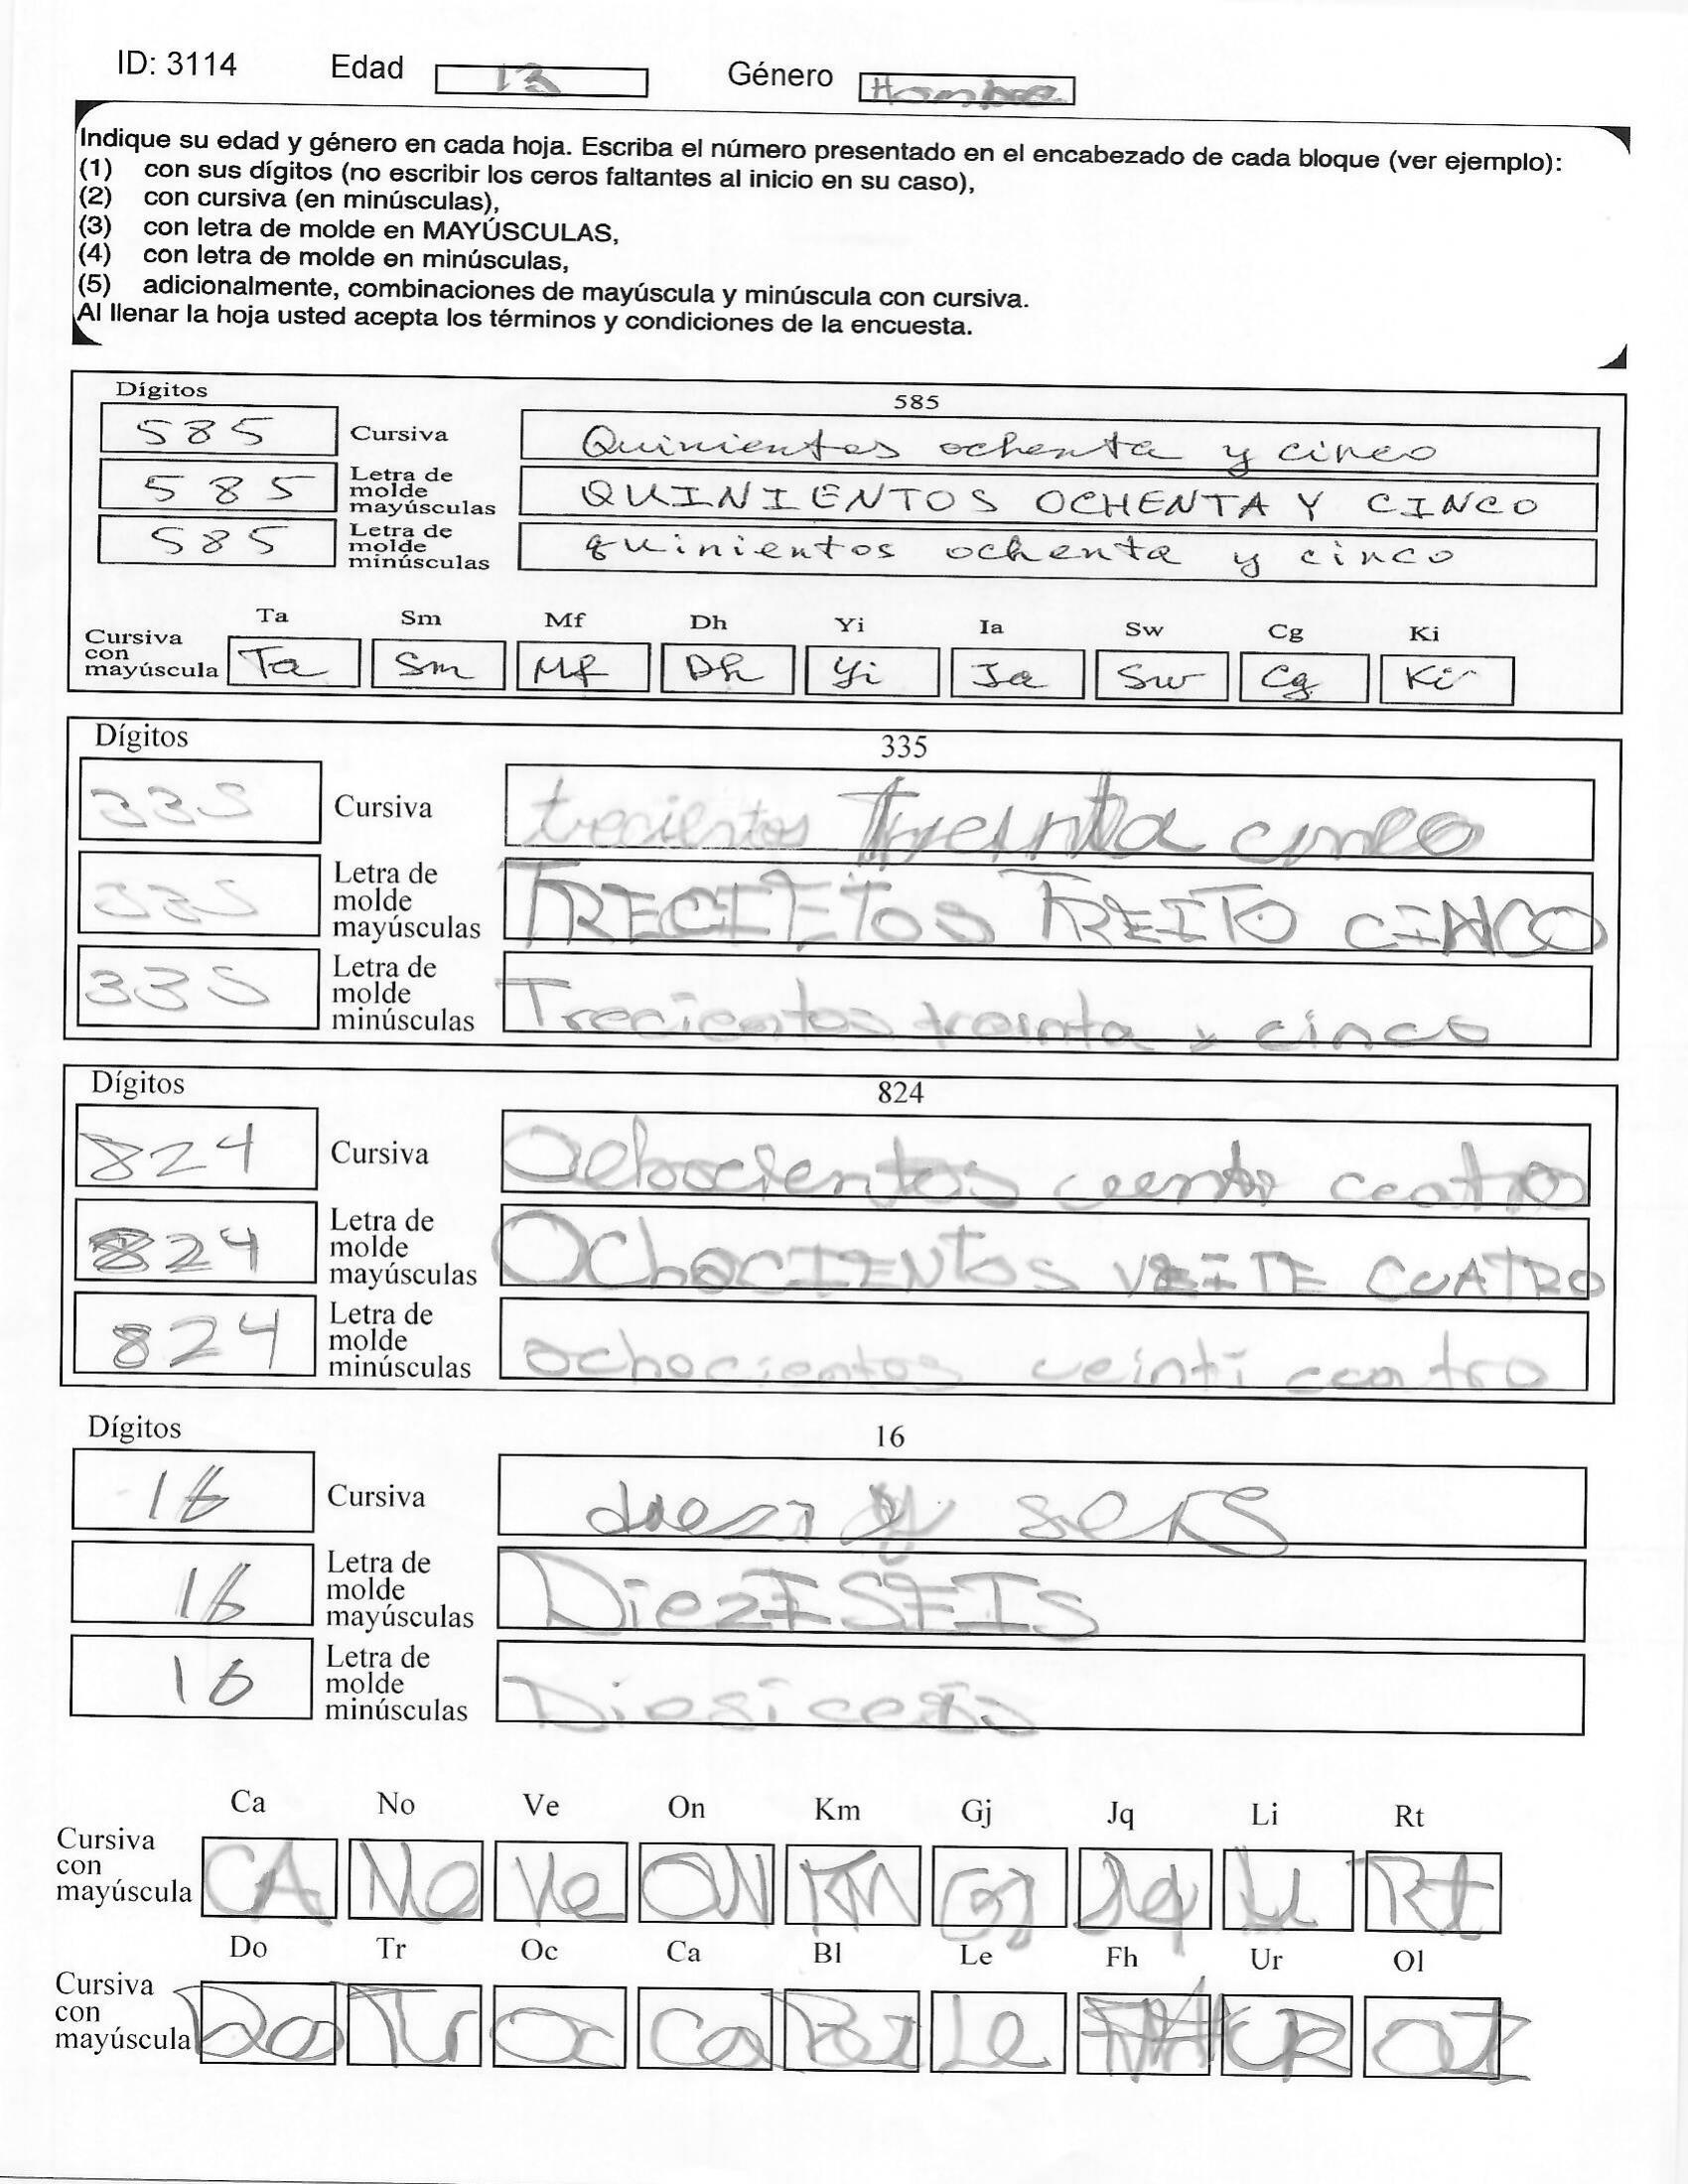 ID: 3114 Edad 13 Género Hombre
Indique su edad y género en cada hoja. Escriba el número presentado en el encabezado de cada bloque (ver ejemplo):
(1) con sus dígitos (no escribir los ceros faltantes al inicio en su caso),
(2) con cursiva (en minúsculas),
(3) con letra de molde en MAYÚSCULAS,
(4) con letra de molde en minúsculas,
(5) adicionalmente, combinaciones de mayúscula y minúscula con cursiva.
Al llenar la hoja usted acepta los términos y condiciones de la encuesta.
Dígitos 585
585 Cursiva Quinientos ochenta y cinco
585 Letra de molde mayúsculas QUINIENTOS OCHENTA Y CINCO
585 Letra de molde minúsculas quinientos ochenta y cinco
Ta Sm Mf Dh Yi Ia Sw Cg Ki
Cursiva con mayúscula Ta Sm Mf Dh Yi Ia Sw Cg Ki
Dígitos 335
335 Cursiva trecientos Treinta cinco
335 Letra de molde mayúsculas TRECIETOS TREITO CINCO
335 Letra de molde minúsculas Trecientos trainta y cinco
Dígitos 824
824 Cursiva Ochocientos ceatro
824 Letra de molde mayúsculas OChOCIENtOS VEITE CUATRO
824 Letra de molde minúsculas ochocientos veinti ceatro
Dígitos 16
16 Cursiva diezi y seis
16 Letra de molde mayúsculas DiezISEIS
16 Letra de molde minúsculas
Ca No Ve On Km Gj Jq Li Rt
Cursiva con mayúscula CA No Ve ON KM Gj Jq Li Rt
Do Tr Oc Ca Bl Le Fh Ur Ol
Cursiva con mayúscula Do Tr Oc Ca Bl Le UR OI